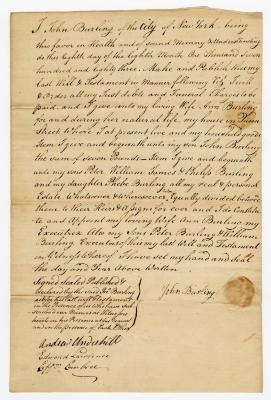 I John Burling of the City of New York being
this favor in Health and of sound Memory & Understanding
do this Eighth day of the Eighth Month One Thousand Seven
hundred and eighty three, Make and Publish this my
Last Will & Testament in Manner following Viz I will
& Order all my Just debts and Funeral Charges to be
paid, and I give unto my loving Wife Ann Burling
for and during her natural life my house in Street
Street where I at present live and my household goods
Item I give and bequeath unto my son John Burling
the sum of seven Pounds – Item I give and bequeath
unto my sons Peter William James & Philip Burling
and my daughter Phebe Burling all my real & personal
Estate Whatsoever & Wheresoever, Equally divided between
them to their Heirs & Assigns for ever and I do Constitute
and Appoint my loving Wife Ann Burling my
Executrix Also my Sons Peter Burling & William
Burling Executors of this my last Will and Testament
In Witness whereof I have set my hand and Seal
the day and Year above Written
Signed Sealed Published &
Declared by the said Jno Burling
as his last will & Testament
in the Presence of us who have sub-
scribed our Names as Witnesses
hereto in his Presence at his request
and in the presence of Each Other
John Burling
Andrew Underhill
Edward Lawrence